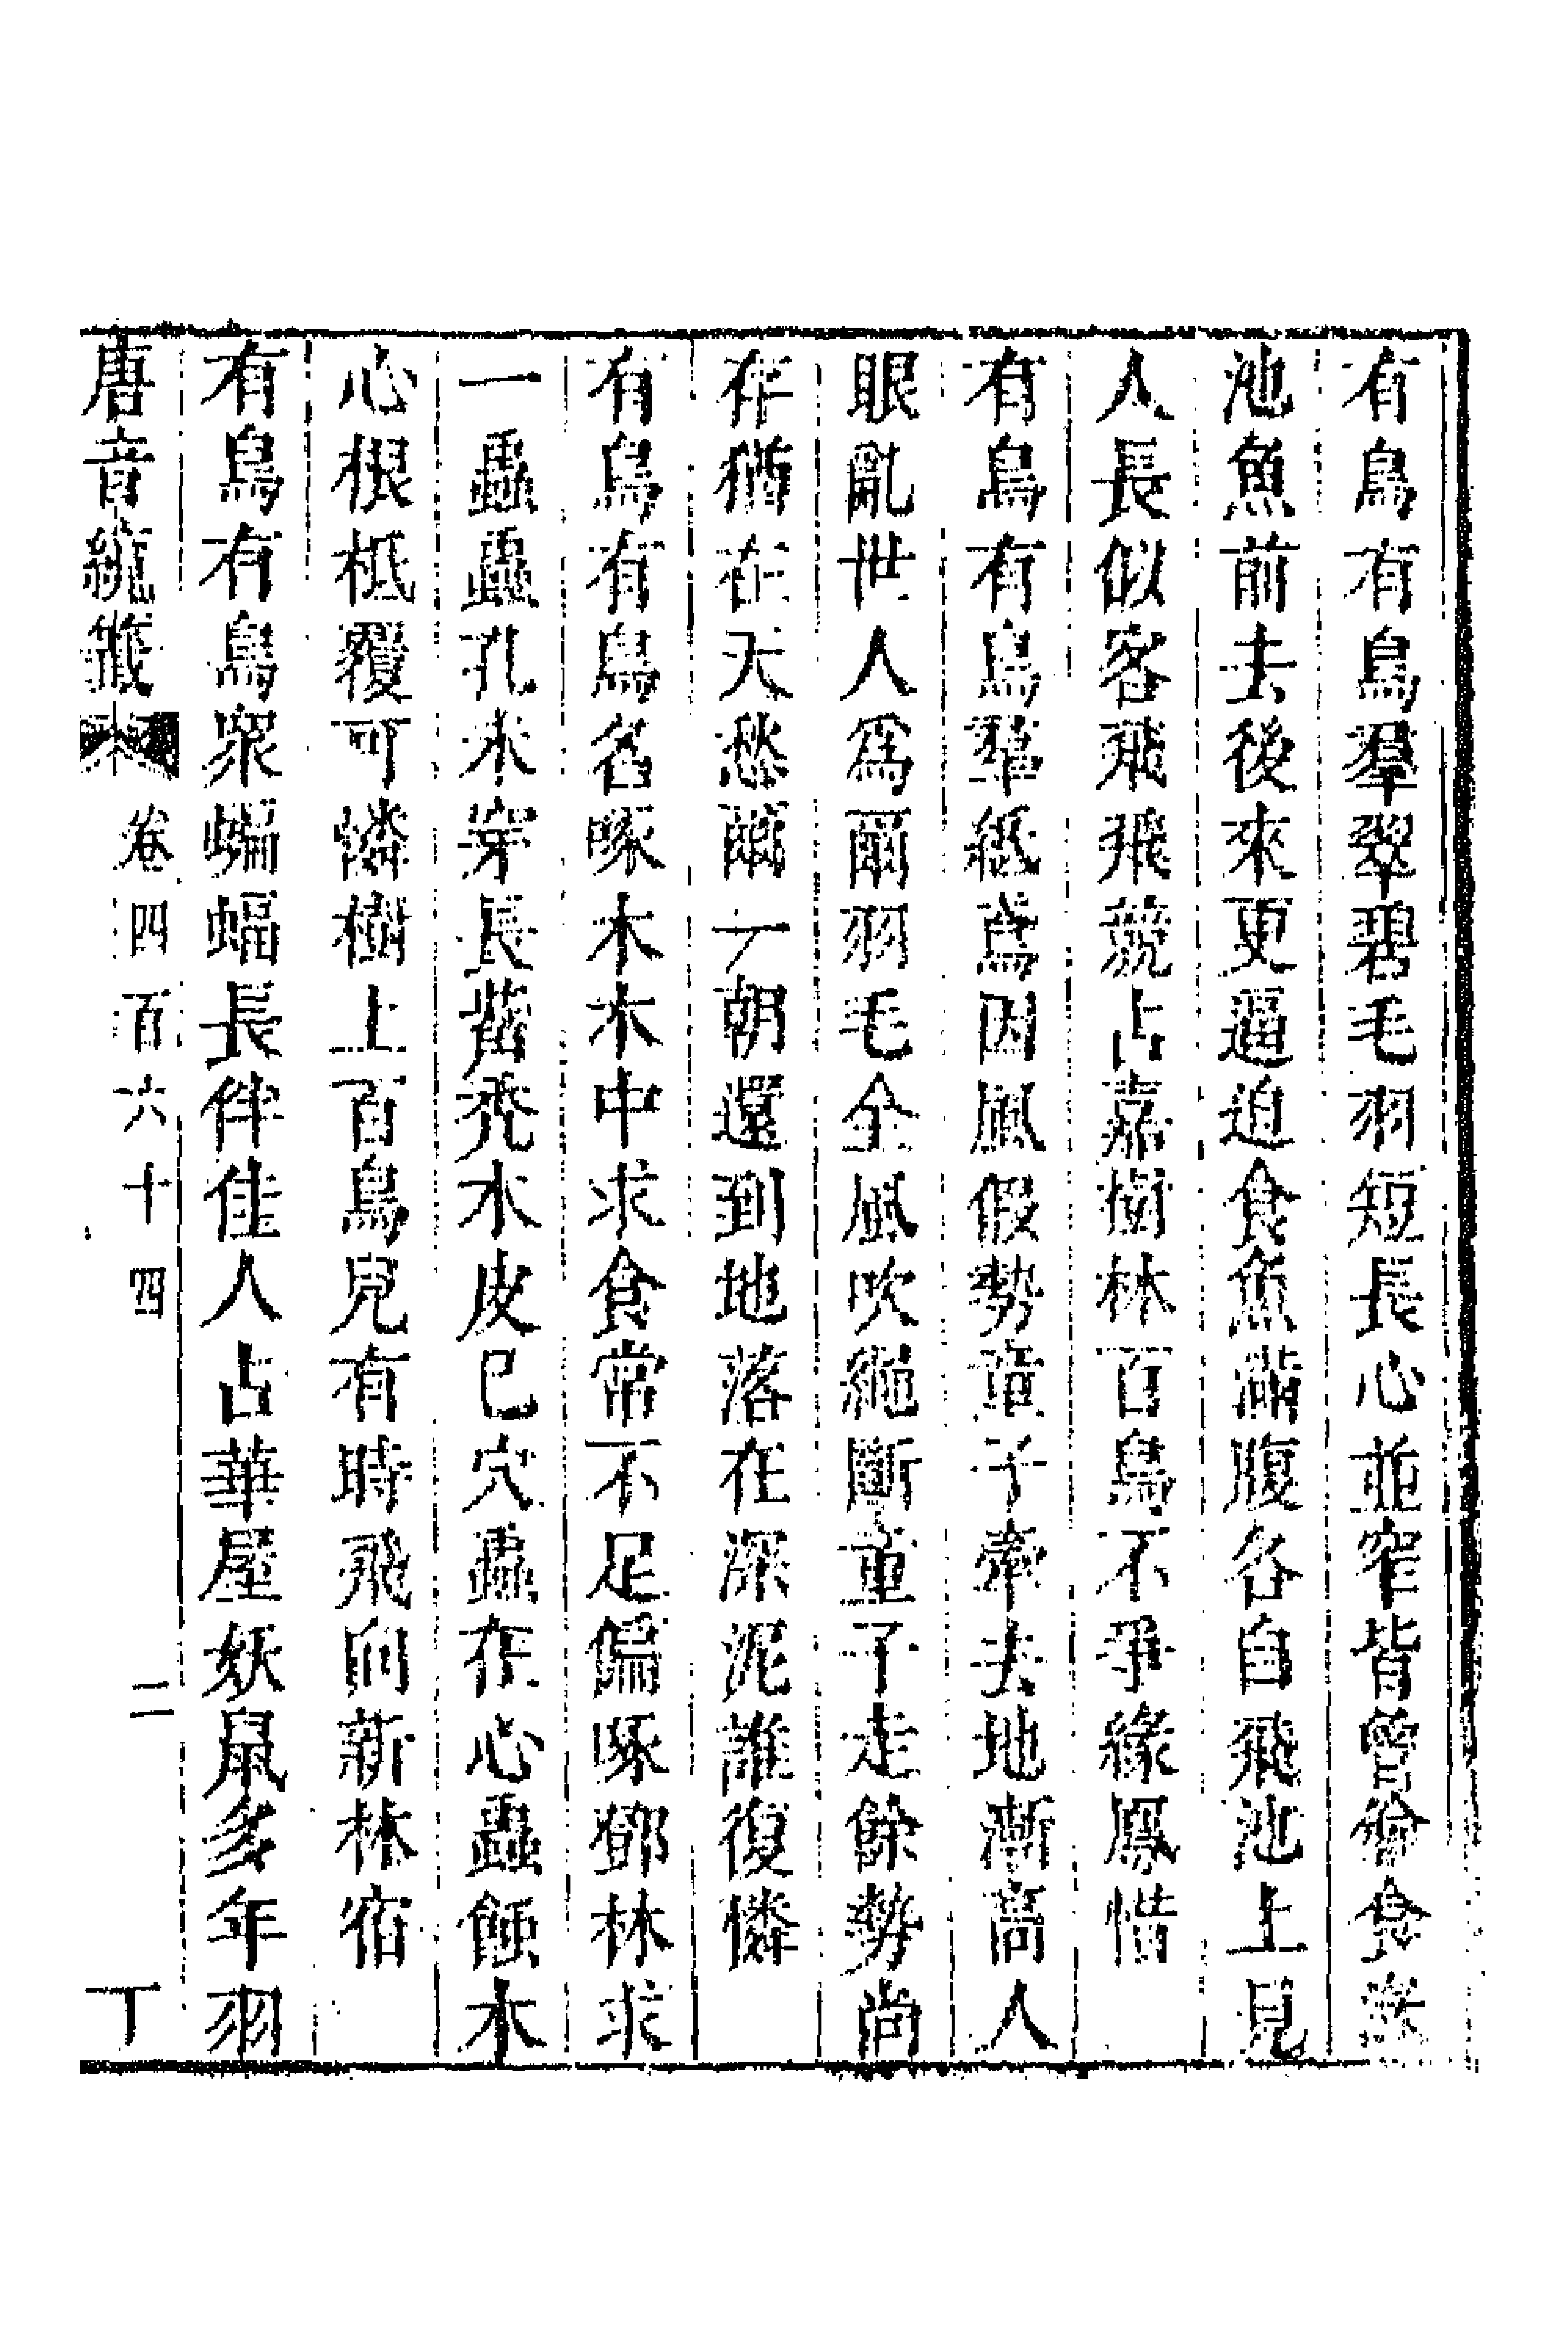 有鳥有鳥羣翠碧毛羽短長心並窄皆曾偷食淥
池魚前去後來更逼迫食魚滿腹各自飛池上見
人長似客飛飛競占嘉樹林百鳥不爭緣鳳惜
有鳥有鳥羣紙鳶因風假勢童子牽去地漸高人
眼亂世人爲爾羽毛全風吹繩斷童子走餘勢尚
存猶在天愁爾一朝還到地落在深泥誰復憐
有鳥有鳥名啄木木中求食常不足偏啄鄧林求
一蟲蟲孔未穿長觜禿木皮已穴蟲在心蟲蝕木
心根柢覆可憐樹上百鳥兒有時飛向新林宿
有鳥有鳥衆蝙蝠長伴佳人占華屋妖鼠多年羽
唐音統籤 卷四百六十四 二 丁